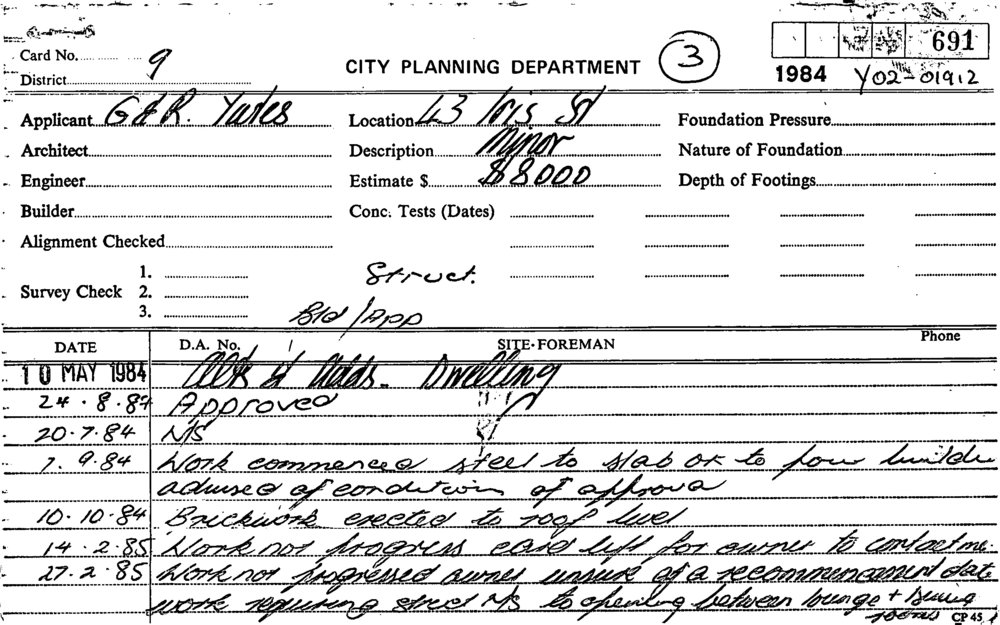 Card No. 9
District
CITY PLANNING DEPARTMENT
3
691
1984 Y02-01912
Applicant G & R. Yates
Location 43 Iris St
Foundation Pressure
Architect
Description Minor
Nature of Foundation
Engineer
Estimate $ $8000
Depth of Footings
Builder
Conc. Tests (Dates)
Alignment Checked
Survey Check 1.
2.
3.
Struct.
Bld/App
DATE D.A. No. SITE-FOREMAN Phone
10 MAY 1984 Alts & Adds. Dwelling
24.8.84 Approved
20.7.84 N/S
7.9.84 Work commenced steel to slab ok to pour builder
advised of condition of approva
10.10.84 Brickwork erected to roof level
14.2.85 Work not progress card left for owner to contact me.
27.2.85 Work not progressed owner unsure of a recommencement date
work requiring steel N/S to opening between lounge + dining
rooms CP 45